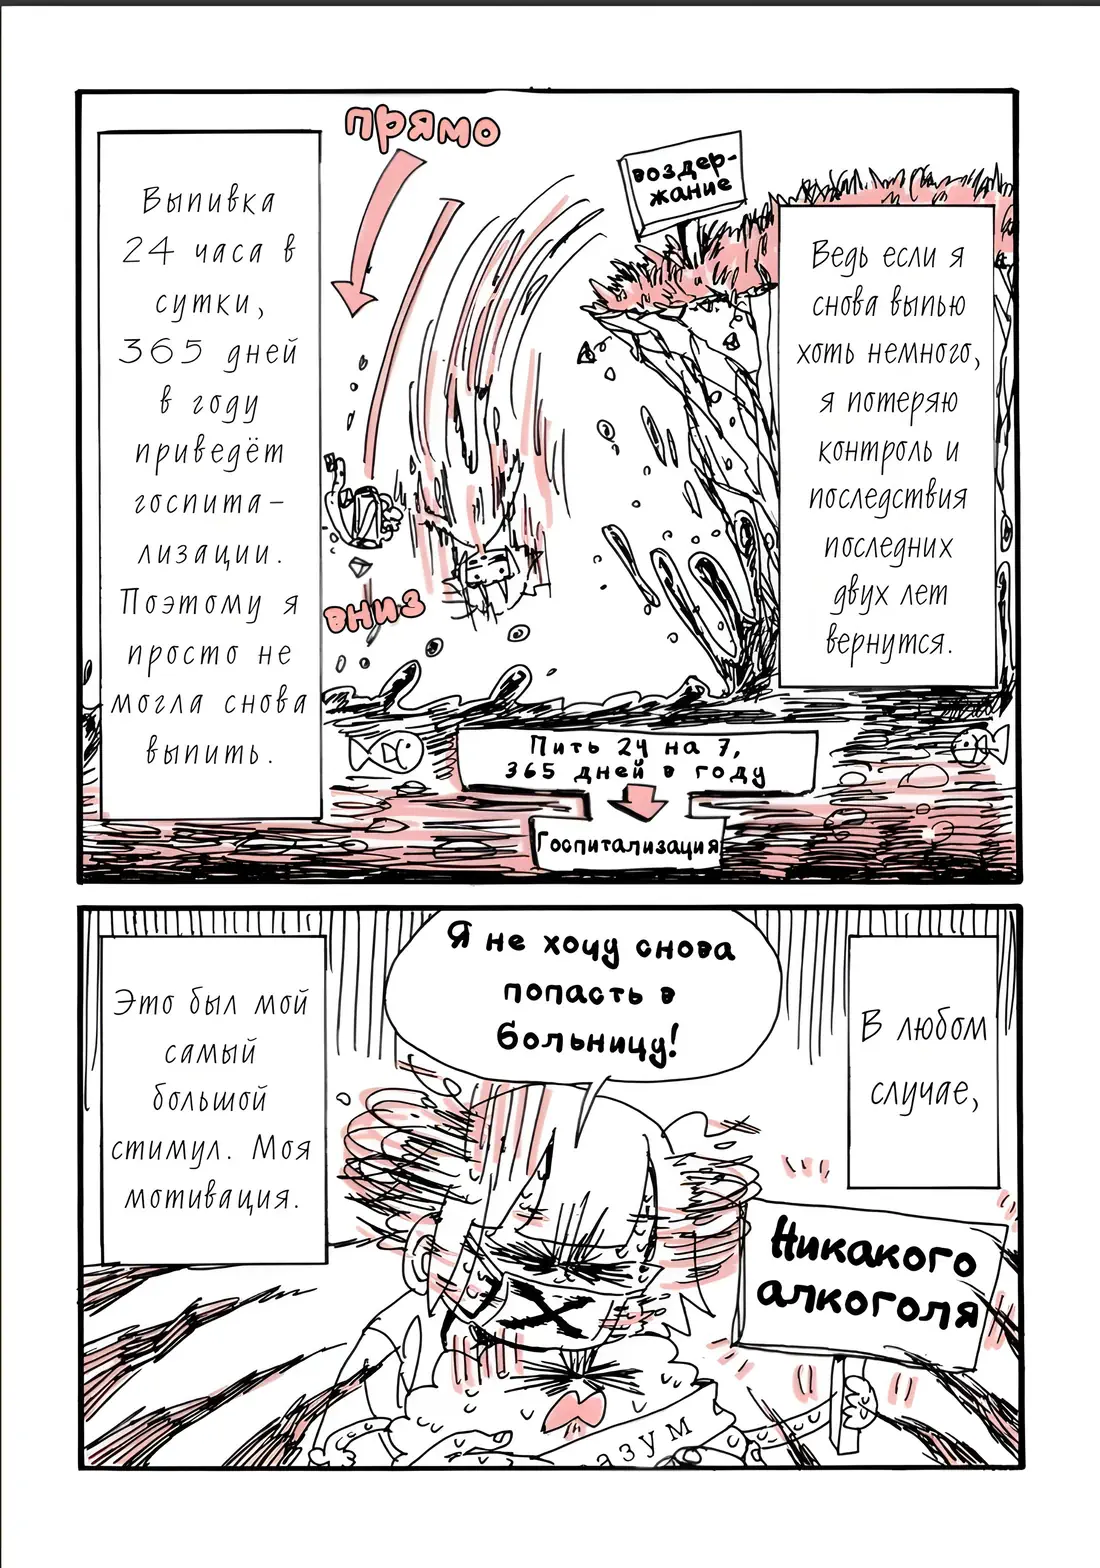 Ведь если я
снова выпью
хоть немного,
я потеряю
контроль и
последствия
последних
двух лет
вернутся.
воздер-
жание
прямо
вниз
Выпивка
24 часа в
сутки,
365 дней
в году
приведёт
госпита-
лизации.
Поэтому я
просто не
могла снова
выпить.
Пить 24 на 7,
365 дней в году
Госпитализация
В любом
случае,
Я не хочу снова
попасть в
больницу!
Никакого
алкоголя
азум
Это был мой
самый
большой
стимул. Моя
мотивация.